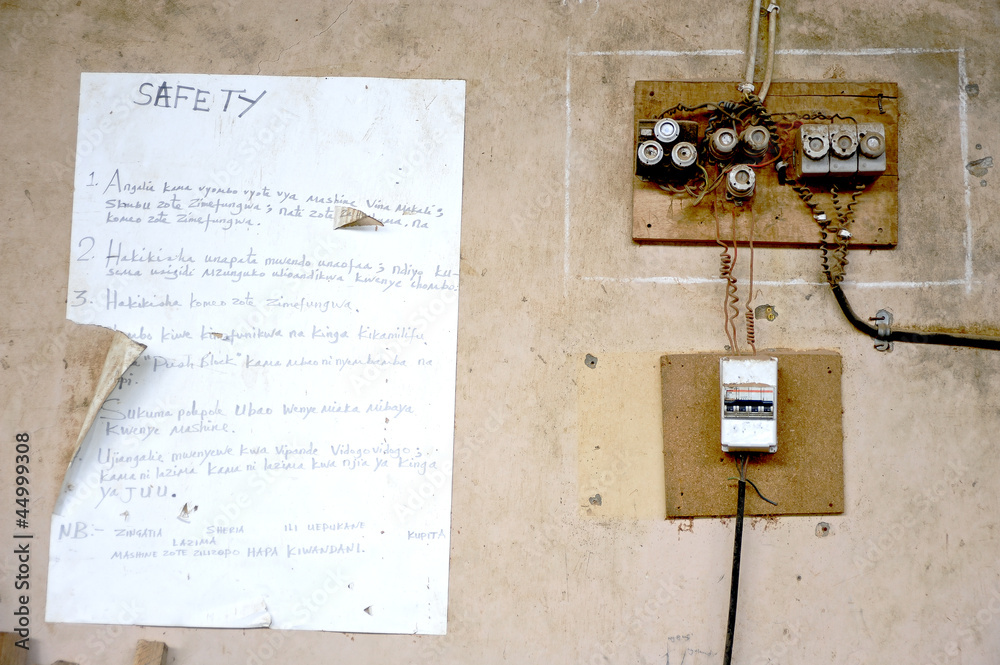 SAFETY
1. Angalia kama vyombo vyote vya mashine vina makali;
skrubu zote zimefungwa; nati zote na
komeo zote zimefungwa.
2. Hakikisha unapata mwendo unaofaa; ndiyo ku-
sema usizidi mzunguko ulioandikwa kwenye chombo.
3. Hakikisha komeo zote zimefungwa.
kiwe kimefunikwa na kinga kikamilifu
"Push block" kama mbao ni nyembamba na
Sukuma polepole ubao wenye miaka mibaya
kwenye mashine.
Ujiangalie mwenyewe kwa vipande vidogovidogo;
kama ni lazima kama ni lazima kwa njia ya kinga
ya JUU.
NB:- ZINGATIA SHERIA ILI UEPUKANE KUPITA
LAZIMA
MASHINE ZOTE ZILIZOPO HAPA KIWANDANI.
Adobe Stock | #44999308